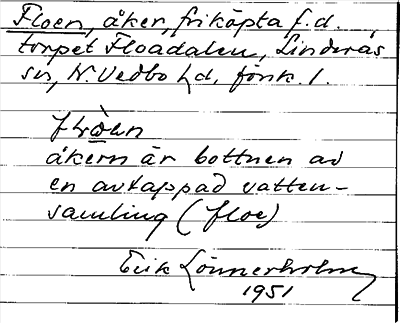 Floen, åker, friköpta f.d.
torpet Floadalen, Linderås
sn, N. Vedbo hd, fönk. 1.
åkern är bottnen av
en avtappad vatten-
samling (floe)
Erik Lönnerholm
1951